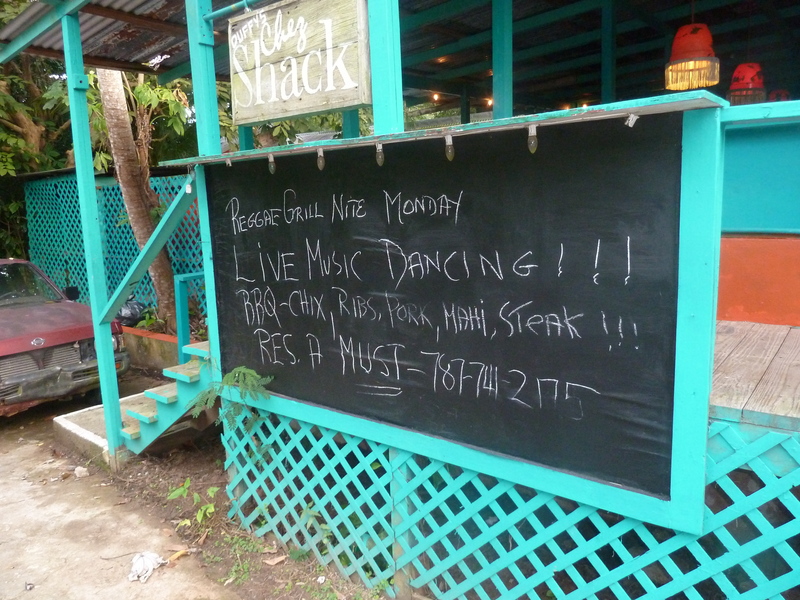 Duffy's
Chez
Shack
REGGAE GRILL NITE MONDAY
LIVE MUSIC DANCING!!!
BBQ-CHIX, RIBS, PORK, MAHI, STEAK!!!
RES. A MUST-787-741-2175